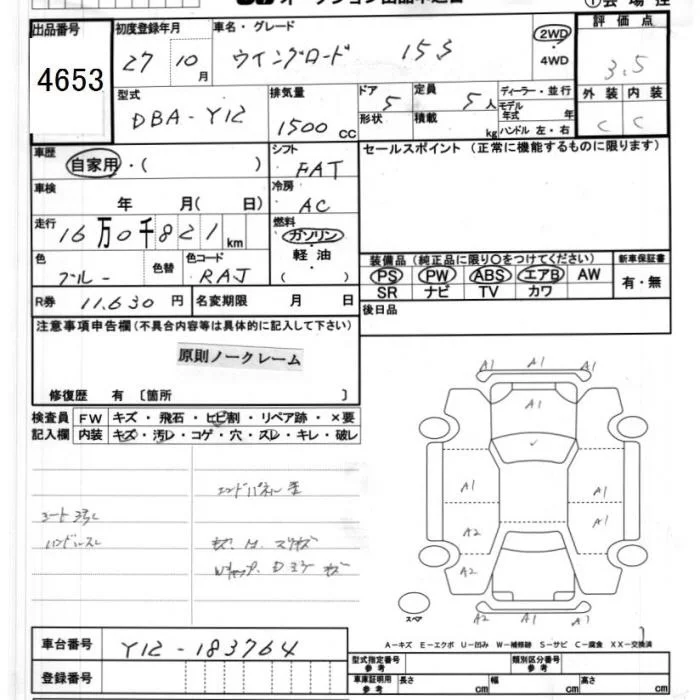 ①会場控
出品番号
4653
初度登録年月
27 10月
車名・グレード
ウイングロード 15S
2WD
・
4WD
評価点
3.5
外装 内装
C C
型式
DBA-Y12
排気量
1500cc
ドア 5
形状
定員 5人
積載 kg
ディーラー・並行
モデル年式 年
ハンドル 左・右
車歴
自家用・( )
シフト
FAT
セールスポイント (正常に機能するものに限ります)
車検
年 月( 日)
冷房
AC
走行
16万0千821km
燃料
ガソリン
・
軽油
( )
色
ブルー
色替
色コード
RAJ
装備品 (純正品に限り○をつけてください)
新車保証書
PS PW ABS エアB AW
有・無
SR ナビ TV カワ
R券 11.630円
名変期限 月 日
後日品
注意事項申告欄(不具合内容等は具体的に記入して下さい)
原則ノークレーム
修復歴 有 〔箇所 〕
検査員記入欄
FW キズ・飛石・ヒビ割・リペア跡・×要
内装 キズ・汚レ・コゲ・穴・スレ・キレ・破レ
A1 A1 A1
A1
A1 A1
A2 A1
A2
A2 A1 A1
スペア
A-キズ E-エクボ U-凹み W-補修跡 S-サビ C-腐食 XX-交換済
車台番号
Y12-183764
登録番号
型式指定番号
参考
類別区分番号
参考
車庫証明用
参考
長さ cm
幅 cm
高さ cm